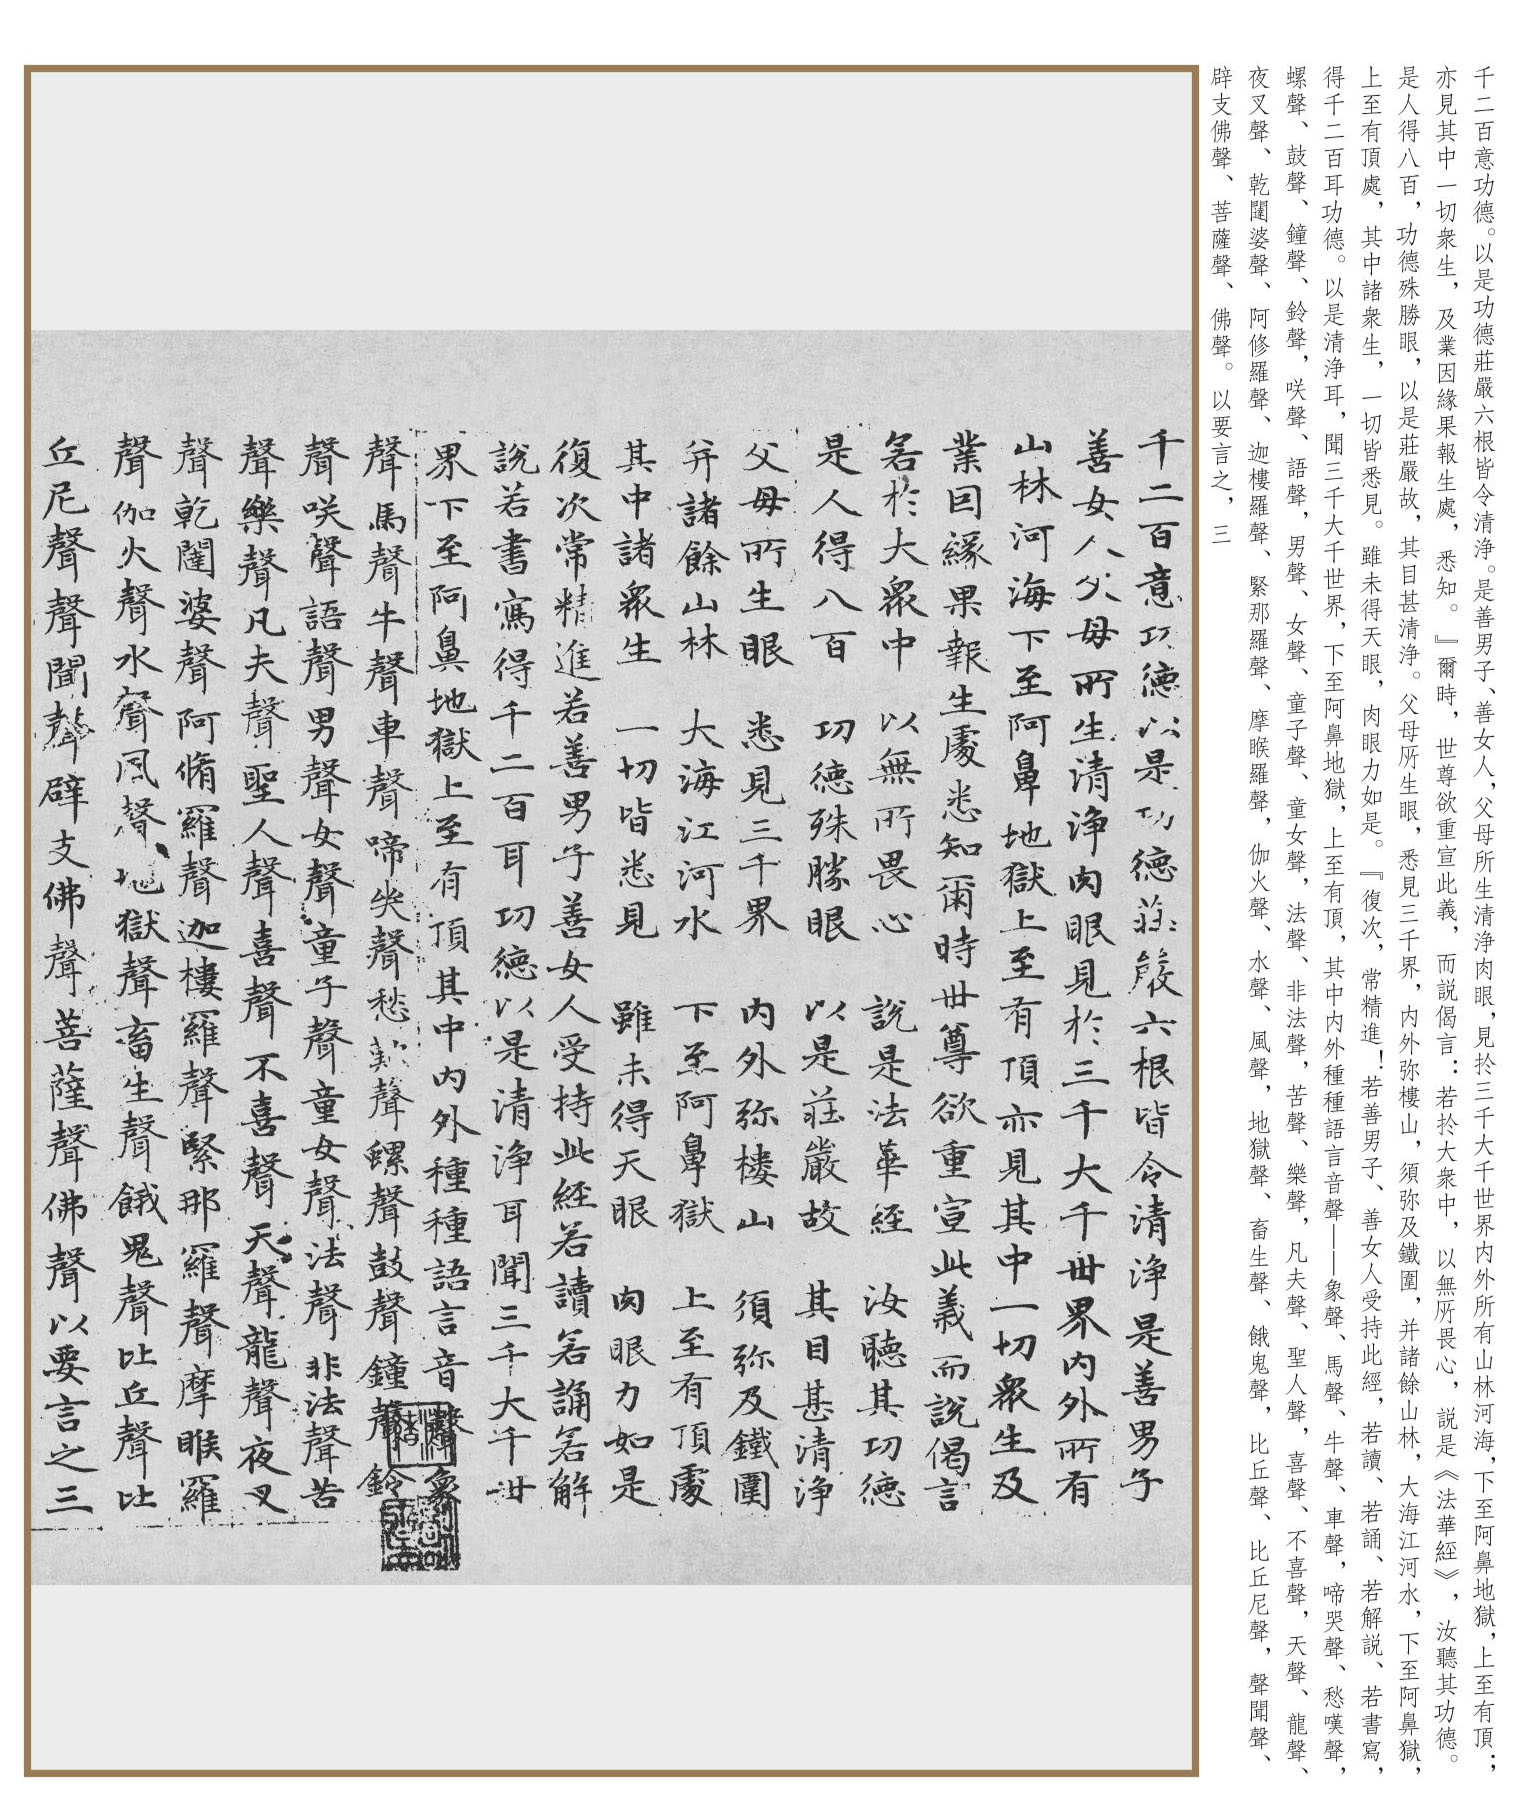 千二百意功德。以是功德莊嚴六根皆令清浄。是善男子、善女人，父母所生清浄肉眼，見扵三千大千世界内外所有山林河海，下至阿鼻地獄，上至有頂；
亦見其中一切衆生，及業因緣果報生處，悉知。』爾時，世尊欲重宣此義，而説偈言：若扵大衆中，以無所畏心，説是《法華經》，汝聽其功德。
是人得八百，功德殊勝眼，以是莊嚴故，其目甚清浄。父母所生眼，悉見三千界，内外弥樓山，須弥及鐵圍，并諸餘山林，大海江河水，下至阿鼻獄，
上至有頂處，其中諸衆生，一切皆悉見。雖未得天眼，肉眼力如是。『復次，常精進！若善男子、善女人受持此經，若讀、若誦、若解説、若書寫，
得千二百耳功德。以是清浄耳，聞三千大千世界，下至阿鼻地獄，上至有頂，其中内外種種語言音聲——象聲、馬聲、牛聲、車聲，啼哭聲、愁嘆聲，
螺聲、鼓聲、鐘聲、鈴聲，咲聲、語聲，男聲、女聲、童子聲、童女聲，法聲、非法聲，苦聲、樂聲，凡夫聲、聖人聲，喜聲、不喜聲，天聲、龍聲、
夜叉聲、乾闥婆聲、阿修羅聲、迦樓羅聲、緊那羅聲、摩睺羅聲，伽火聲、水聲、風聲，地獄聲、畜生聲、餓鬼聲，比丘聲、比丘尼聲，聲聞聲、
辟支佛聲、菩薩聲、佛聲。以要言之，三
千二百意功德以是功德莊嚴六根皆令清浄是善男子
善女人父母所生清浄肉眼見扵三千大千世界内外所有
山林河海下至阿鼻地獄上至有頂亦見其中一切衆生及
業因緣果報生處悉知爾時世尊欲重宣此義而說偈言
若扵大衆中　以無所畏心　說是法華經　汝聽其功德
是人得八百　功德殊勝眼　以是莊嚴故　其目甚清浄
父母所生眼　悉見三千界　内外弥樓山　須弥及鐵圍
并諸餘山林　大海江河水　下至阿鼻獄　上至有頂處
其中諸衆生　一切皆悉見　雖未得天眼　肉眼力如是
復次常精進若善男子善女人受持此經若讀若誦若解
說若書寫得千二百耳功德以是清浄耳聞三千大千世
界下至阿鼻地獄上至有頂其中内外種種語言音聲象
聲馬聲牛聲車聲啼哭聲愁歎聲螺聲鼓聲鐘聲鈴
聲咲聲語聲男聲女聲童子聲童女聲法聲非法聲苦
聲樂聲凡夫聲聖人聲喜聲不喜聲天聲龍聲夜叉
聲乾闥婆聲阿脩羅聲迦樓羅聲緊那羅聲摩睺羅
聲伽火聲水聲風聲地獄聲畜生聲餓鬼聲比丘聲比
丘尼聲聲聞聲辟支佛聲菩薩聲佛聲以要言之三